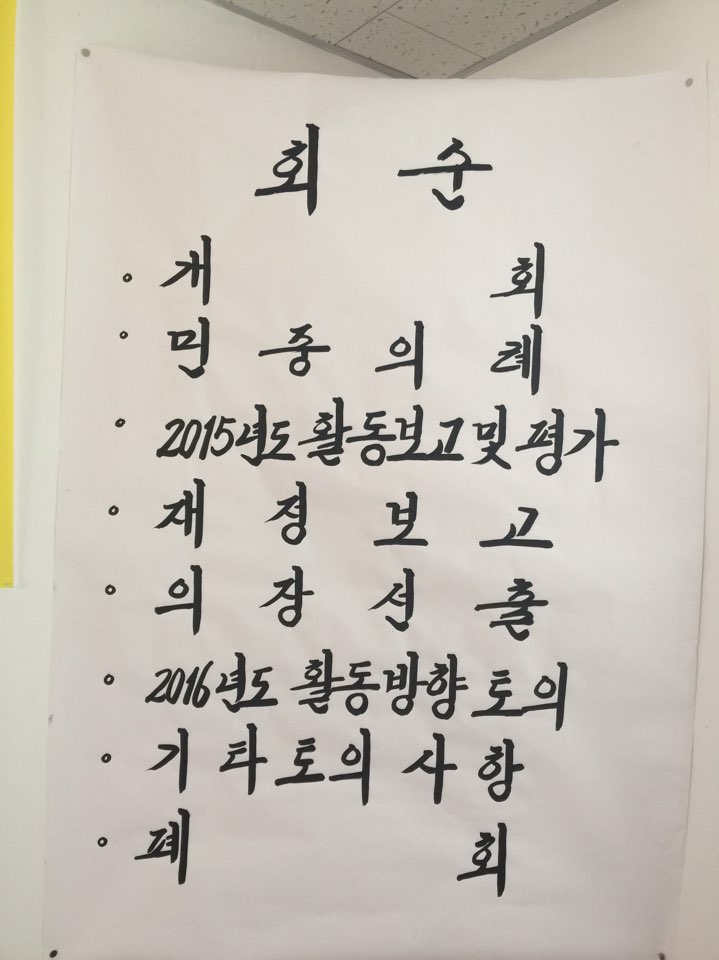 회 순
◦ 개 회
◦ 민 중 의 례
◦ 2015년도 활동보고 및 평가
◦ 재 정 보 고
◦ 의 장 선 출
◦ 2016년도 활동방향 토의
◦ 기 타 토 의 사 항
◦ 폐 회